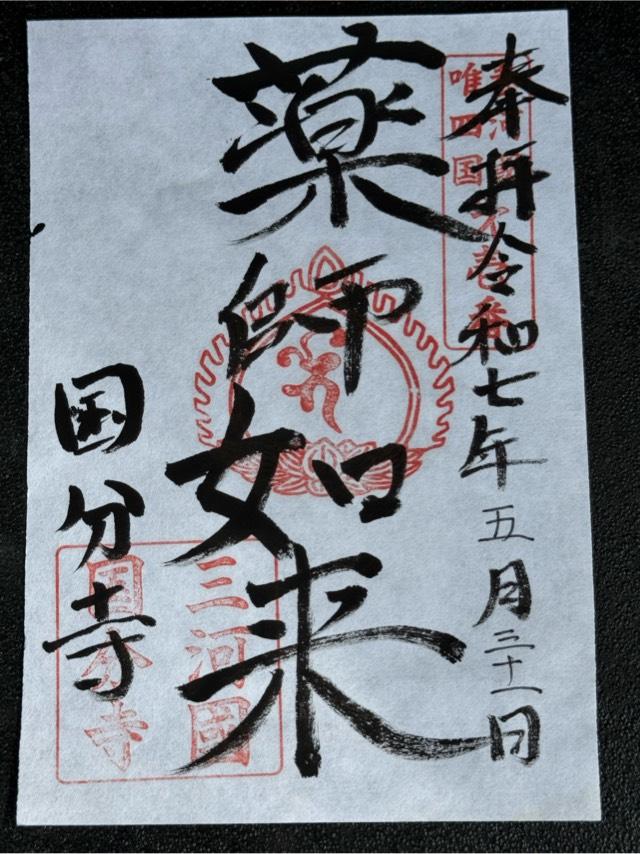 奉拝令和七年五月三十一日
唯四国
壱番
薬師如来
国分寺
三河國
国分寺